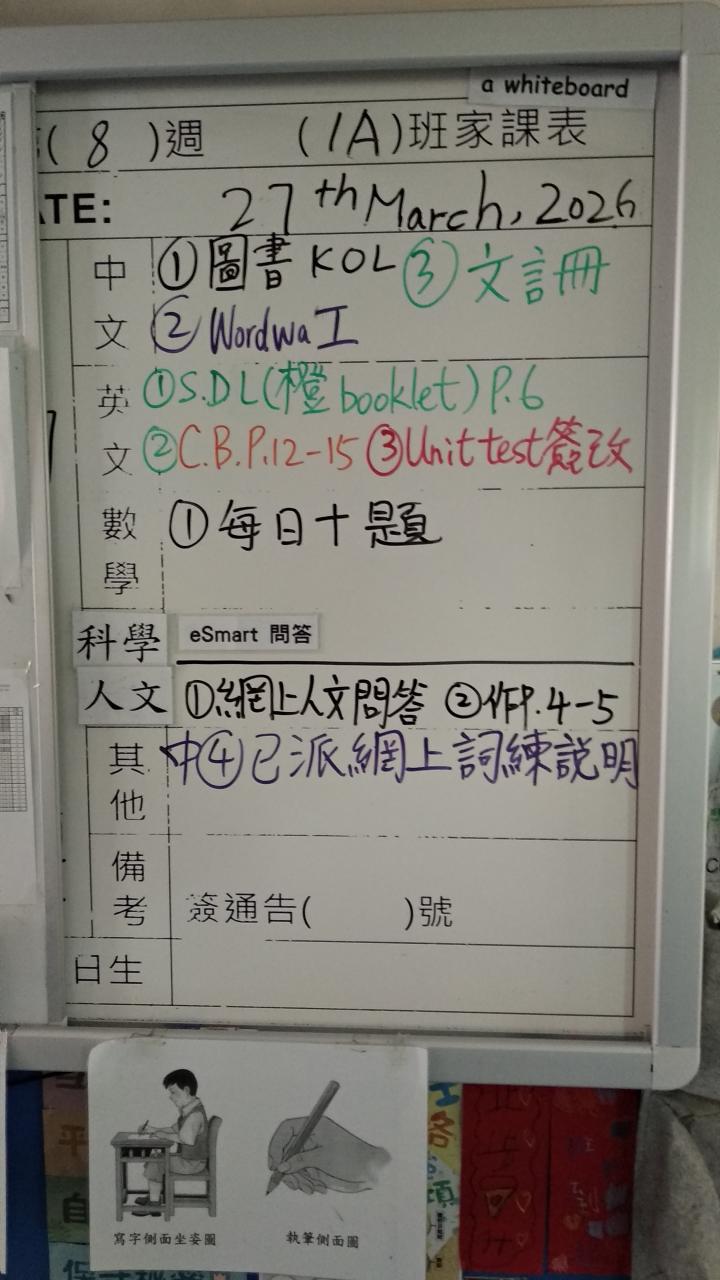 a whiteboard
( 8 )週 (1A)班家課表
ATE: 27th March, 2026
中文 ①圖書 KOL ③文訂冊
②Wordwa工
英文 ①S.D.L(橙booklet) P.6
②C.B.P.12-15 ③Unit test簽改
數學 ①每日十題
科學 eSmart 問答
人文 ①網上人文問答 ②作P.4-5
其他 中④已派網上詞練説明
備考 簽通告( )號
日生
寫字側面坐姿圖 執筆側面圖